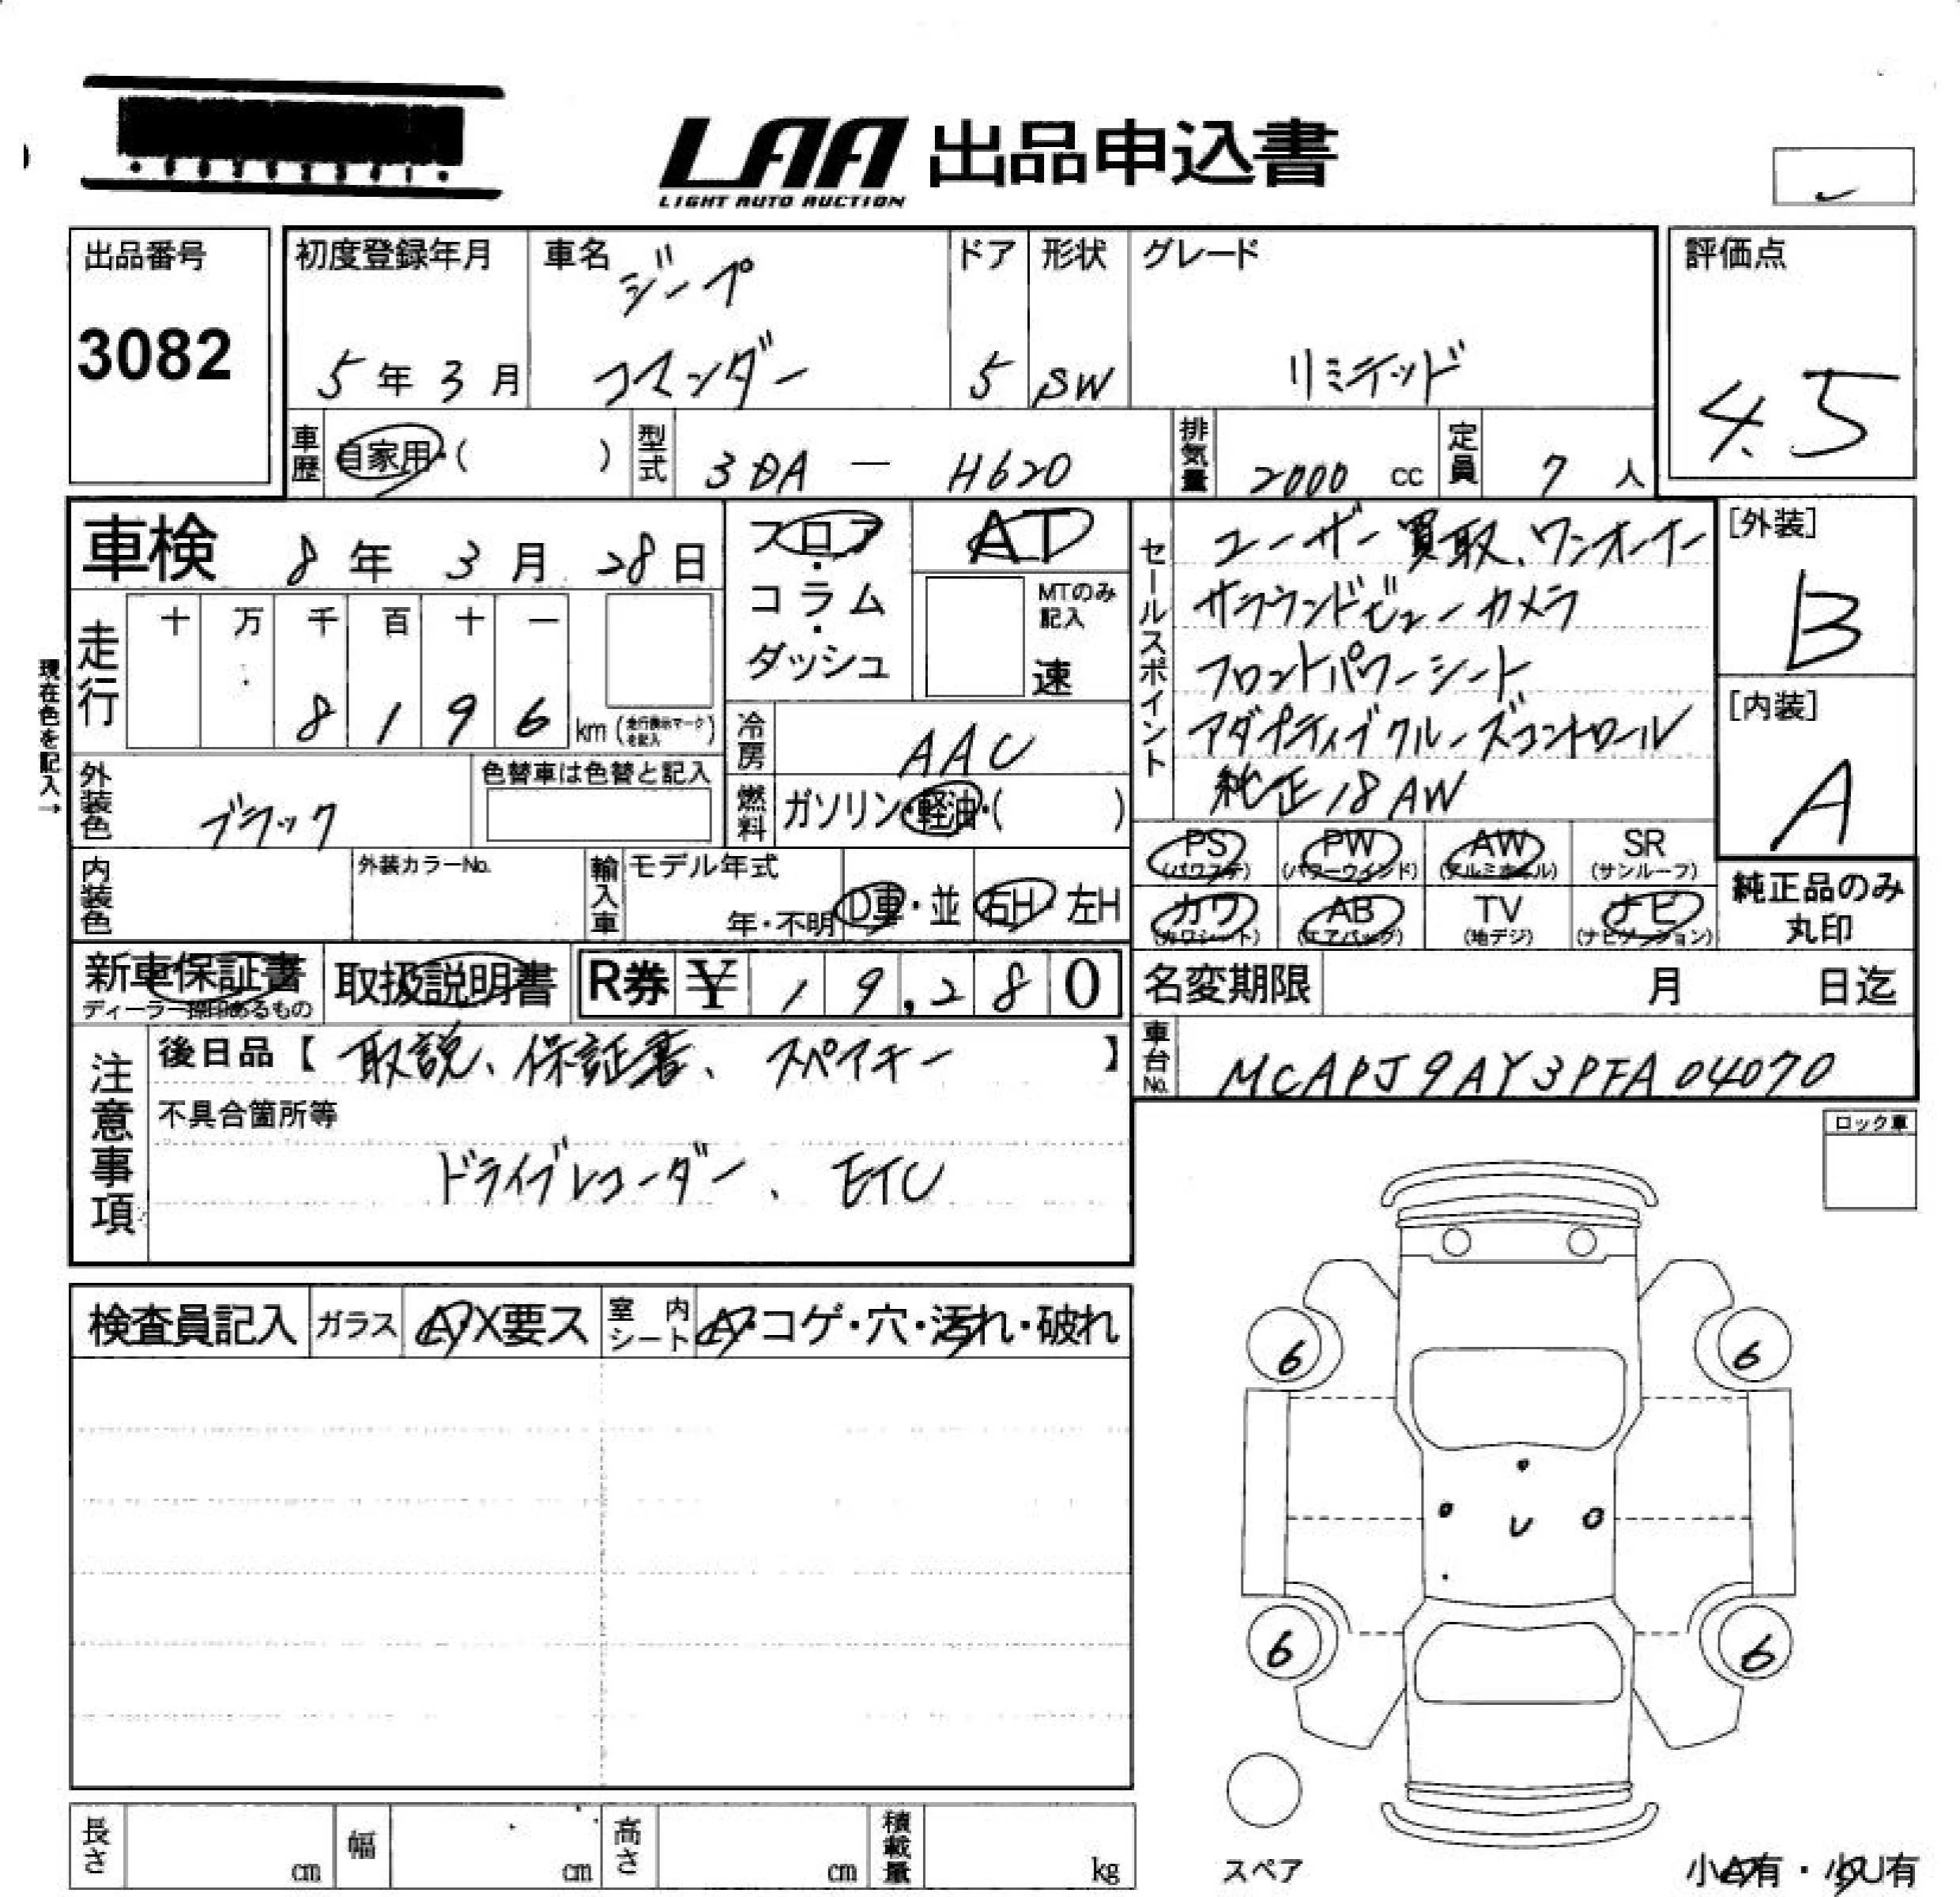 LAA 出品申込書
LIGHT AUTO AUCTION
出品番号
3082
初度登録年月
5年3月
車名
ジープ
コマンダー
ドア
5
形状
SW
グレード
リミテッド
評価点
4.5
車歴
自家用・( )
型式
3DA — H620
排気量
2000 cc
定員
7 人
車検 8年 3月 28日
フロア
・
コラム
・
ダッシュ
AT
MTのみ
記入
速
セールスポイント
ユーザー買取、ワンオーナー
サラウンドビューカメラ
フロントパワーシート
アダプティブクルーズコントロール
純正18AW
[外装]
B
[内装]
A
現在色を記入→
走行
十 万 千 百 十 一
8 1 9 6 km (走行表示マークを記入)
冷房
AAC
燃料
ガソリン・軽油・( )
外装色
ブラック
色替車は色替と記入
内装色
外装カラーNo.
輸入車
モデル年式
年・不明
D車・並
右H 左H
PS
(パワステ)
PW
(パワーウインド)
AW
(アルミホイル)
SR
(サンルーフ)
カワ
(カワシート)
AB
(エアバック)
TV
(地デジ)
ナビ
(ナビゲーション)
純正品のみ
丸印
新車保証書
ディーラー捺印あるもの
取扱説明書
R券 ¥ 19,280
名変期限 月 日迄
車台No.
MCAPJ9AY3PFA04070
注意事項
後日品【 取説、保証書、スペアキー 】
不具合箇所等
ドライブレコーダー、ETC
ロック車
検査員記入
ガラス
A・X要ス
室内シート
A・コゲ・穴・汚れ・破れ
6 6
U
6 6
スペア
小A有・小U有
長さ cm
幅 cm
高さ cm
積載量 kg